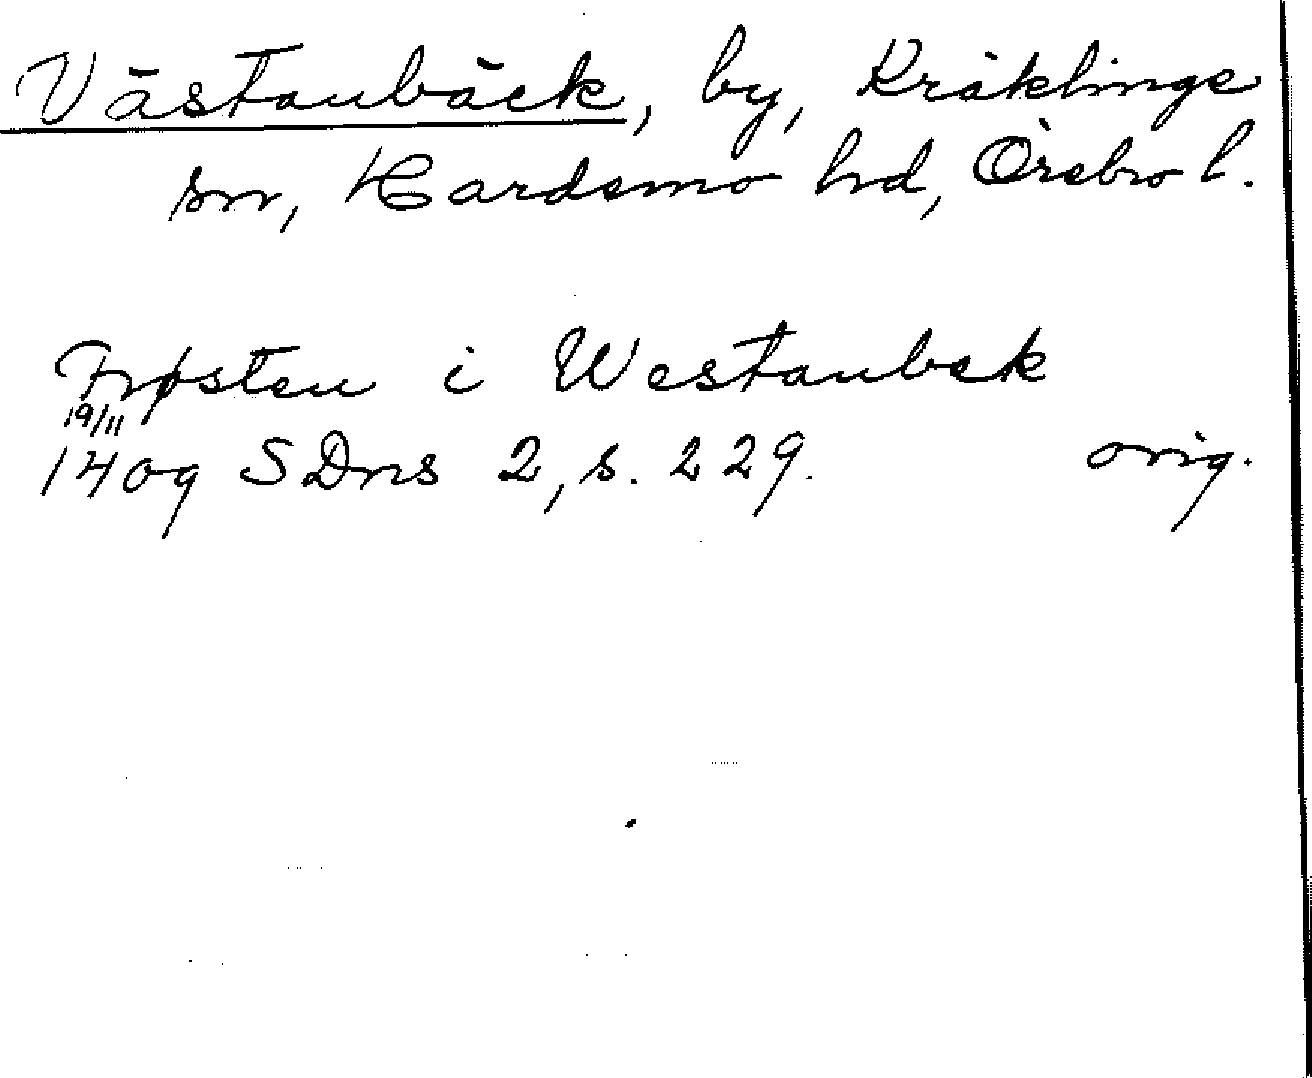 Västanbäck, by, Kräklinge
sn, Hardemo hd, Örebro l.
Frøsten i Westanbek
19/11
1409 SDns 2, s. 229. orig.